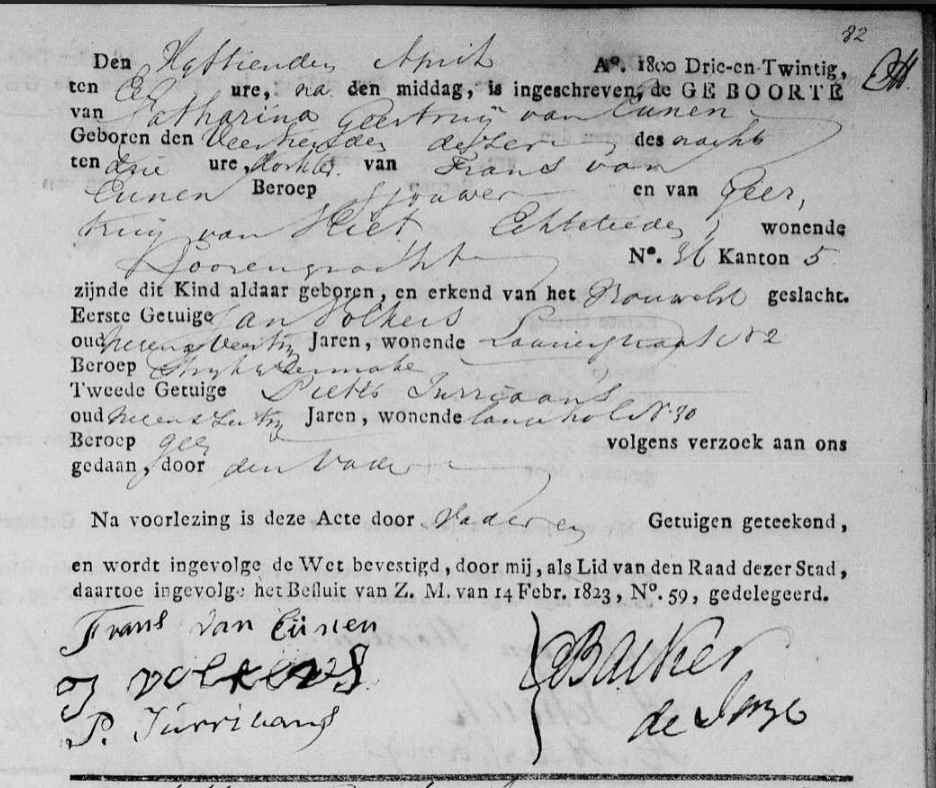 82
Den Vyftienden April Aº. 1800 Drie-en-Twintig,
ten Een ure, na den middag, is ingeschreven, de GEBOORTE
van Catharina Geertruij van Eunen
Geboren den Veertienden dezer des nachts
ten drie ure, van Frans van
Eunen Beroep Sjouwer en van Geer,
truij van Vliet Echtelieden, wonende
Roosengracht Nº. 36 Kanton 5
zijnde dit Kind aldaar geboren, en erkend van het Vrouwelyk geslacht.
Eerste Getuige Jan Volkers
oud Jaren, wonende Laurierstraat N 2
Beroep
Tweede Getuige Pieter Jurriaans
oud Jaren, wonende Nº 30
Beroep geen volgens verzoek aan ons
gedaan, door den Vader
Na voorlezing is deze Acte door Vader en Getuigen geteekend,
en wordt ingevolge de Wet bevestigd, door mij, als Lid van den Raad dezer Stad,
daartoe ingevolge het Besluit van Z. M. van 14 Febr. 1823, Nº. 59, gedelegeerd.
Frans van Eünen
J volkers Backer
P. Jurriaans de Jonge